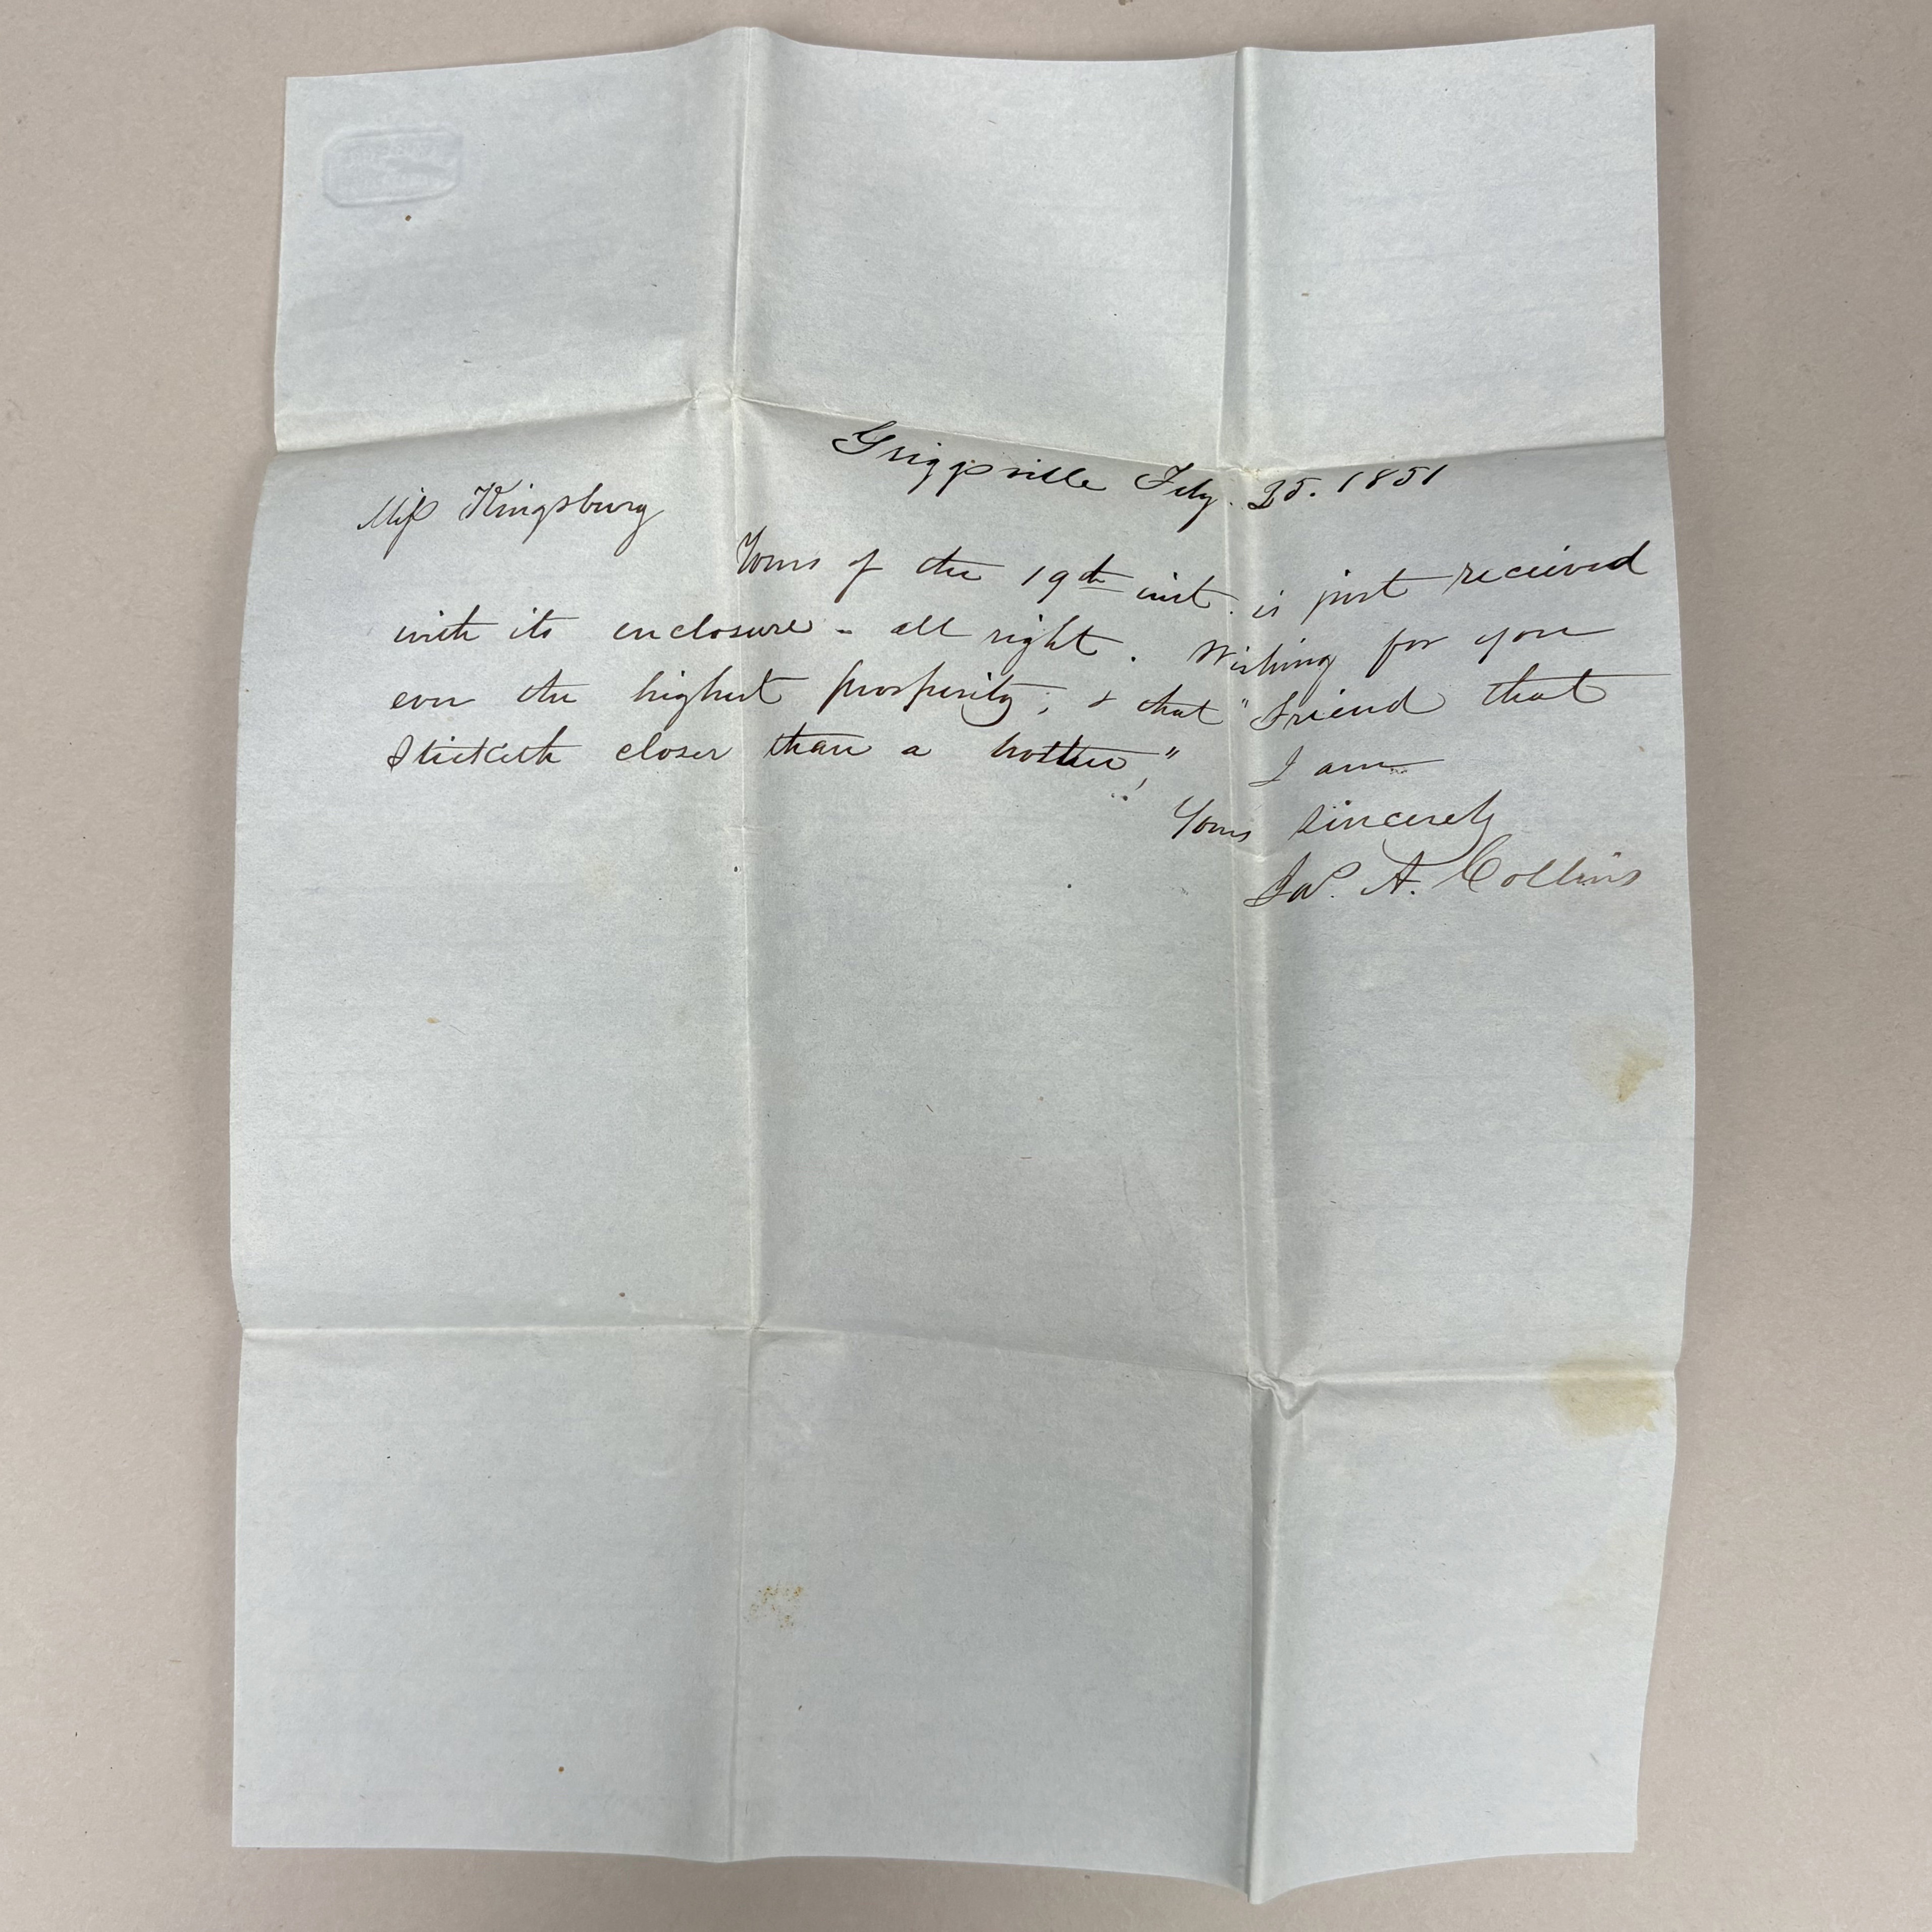 Griggsville Feby. 25. 1851
Miss Kingsbury
Yours of the 19th inst. is just received
with its enclosure - all right. Wishing for you
ever the highest prosperity; & that "friend that
sticketh closer than a brother,"! I am
Yours sincerely
Jas. A. Collins